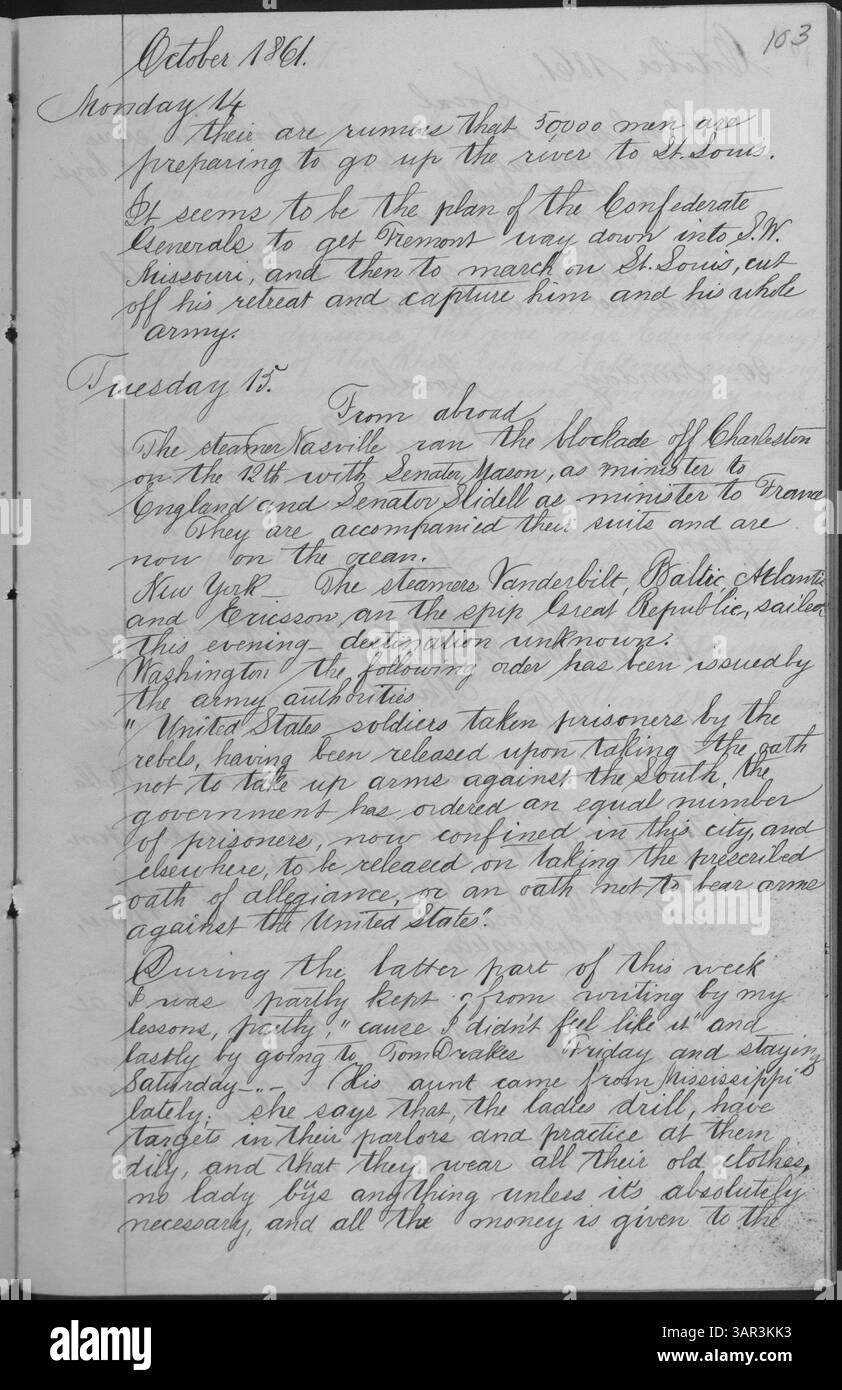 103
October 1861.
Monday 14
their are rumors that 50,000 men are
preparing to go up the river to St. Louis.
It seems to be the plan of the Confederate
Generals to get Fremont way down into S.W.
Missouri, and then to march on St. Louis, cut
off his retreat and capture him and his whole
army.
Tuesday 15.
From abroad
The steamer Nasville ran the blockade off Charleston
on the 12th with Senator Mason, as minister to
England and Senator Slidell as minister to France
They are accompanied their suits and are
now on the ocean.
New York - The steamers Vanderbilt, Baltic, Atlantic
and Ericsson an the spip Great Republic, sailed
this evening - destination unknown.
Washington the following order has been issued by
the army authorities
" United States soldiers taken prisoners by the
rebels, having been released upon taking the oath
not to take up arms against the South, the
government has ordered an equal number
of prisoners, now confined in this city, and
elsewhere, to be released on taking the prescribed
oath of allegiance, or an oath not to bear arms
against the United States".
During the latter part of this week
I was partly kept from writing by my
lessons, partly, "cause I didn't feel like it" and
lastly by going to Tom Drakes Friday and staying
Saturday - . - His aunt came from Mississippi
lately; she says that, the ladies drill, have
targets in their parlors and practice at them
dily, and that they wear all their old clothes,
no lady bys anything unless it's absolutely
necessary, and all the money is given to the
alamy
Image ID: 3AR3KK3
www.alamy.com